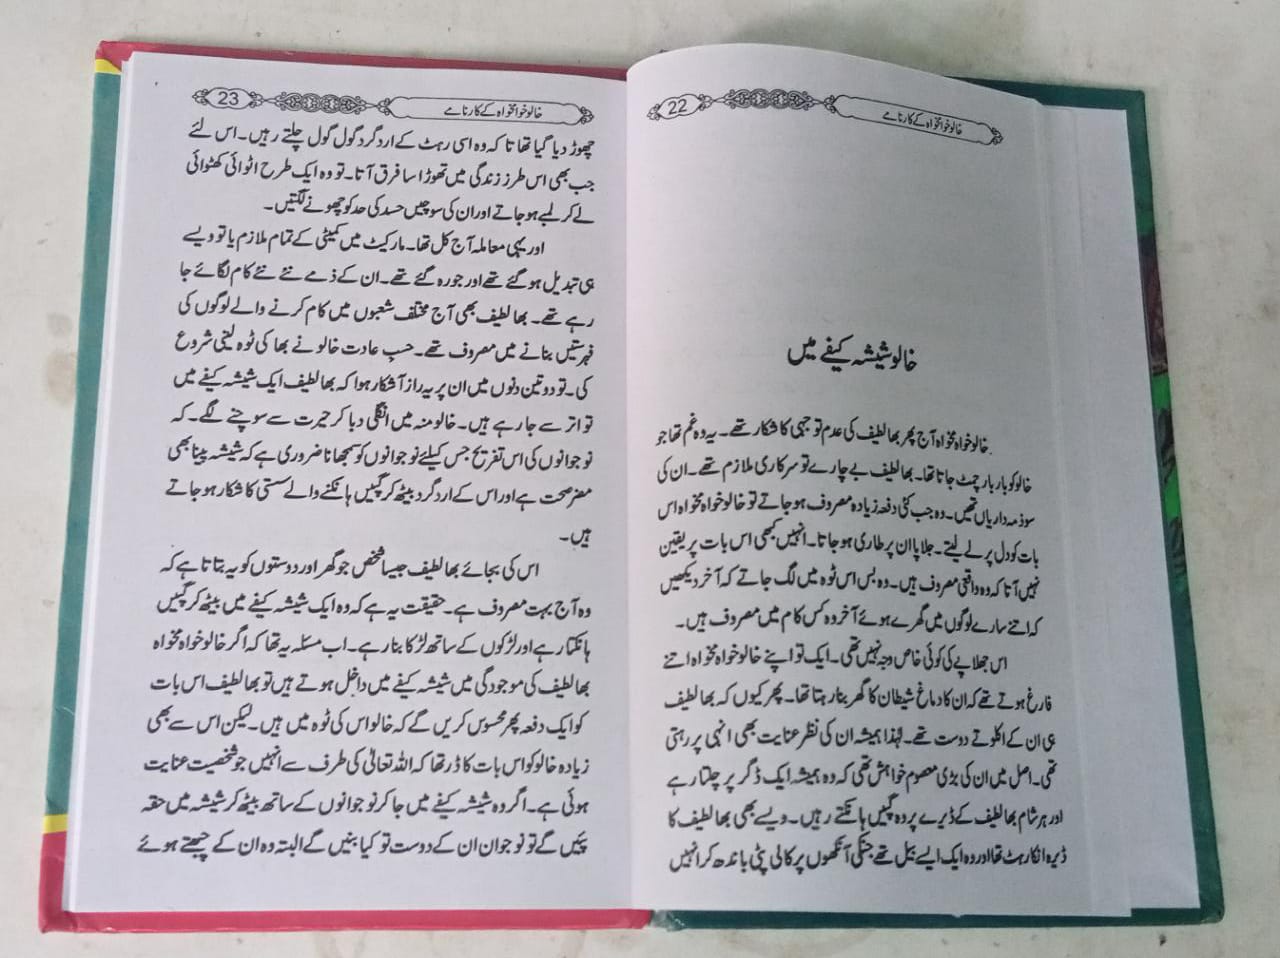 22
خالو خوامخواہ کے کارنامے
خالو شیشہ کیفے میں
خالو خواہ مخواہ آج پھر بھا لطیف کی عدم توجہی کا شکار تھے۔ یہ وہ غم تھا جو
خالو کو بار بار چمٹ جاتا تھا۔ بھا لطیف بے چارے تو سرکاری ملازم تھے۔ ان کی
سو ذمہ داریاں تھیں۔ وہ جب کئی دفعہ زیادہ مصروف ہو جاتے تو خالو خواہ مخواہ اس
بات کو دل پر لے لیتے۔ جلاپا ان پر طاری ہو جاتا۔ انہیں کبھی اس بات پر یقین
نہیں آتا کہ وہ واقعی مصروف ہیں۔ وہ بس اس ٹوہ میں لگ جاتے کہ آخر دیکھیں
کہ اتنے سارے لوگوں میں گھرے ہوئے آخر وہ کس کام میں مصروف ہیں۔
اس جھلاپے کی کوئی خاص وجہ نہیں تھی۔ ایک تو اپنے خالو خواہ مخواہ اتنے
فارغ ہوتے تھے کہ ان کا دماغ شیطان کا گھر بنا رہتا تھا۔ پھر کیوں کہ بھا لطیف
ہی ان کے اکلوتے دوست تھے۔ لہٰذا ہمیشہ ان کی نظر عنایت بھی انہی پر رہتی
تھی۔ اصل میں ان کی بڑی معصوم خواہش تھی کہ وہ ہمیشہ ایک ڈگر پر چلتا رہے
اور ہر شام بھا لطیف کے ڈیرے پر وہ گپیں ہانکتے رہیں۔ ویسے بھی بھا لطیف کا
ڈیرہ انکا رہٹ تھا اور وہ ایک ایسے بیل تھے جنکی آنکھوں پر کالی پٹی باندھ کر انہیں
23
خالو خوامخواہ کے کارنامے
چھوڑ دیا گیا تھا تا کہ وہ اسی رہٹ کے اردگرد گول گول چلتے رہیں۔ اس لئے
جب بھی اس طرز زندگی میں تھوڑا سا فرق آتا۔ تو وہ ایک طرح اٹوائی کھٹوائی
لے کر لمبے ہو جاتے اور ان کی سوچیں حسد کی حد کو چھونے لگتیں۔
اور یہی معاملہ آج کل تھا۔ مارکیٹ میں کمیٹی کے تمام ملازم یا تو ویسے
ہی تبدیل ہو گئے تھے اور جو رہ گئے تھے۔ ان کے ذمے نئے نئے کام لگائے جا
رہے تھے۔ بھا لطیف بھی آج مختلف شعبوں میں کام کرنے والے لوگوں کی
فہرستیں بنانے میں مصروف تھے۔ حسبِ عادت خالو نے بھا کی ٹوہ لینی شروع
کی۔ تو دو تین دنوں میں ان پر یہ راز آشکار ہوا کہ بھا لطیف ایک شیشہ کیفے میں
تواتر سے جا رہے ہیں۔ خالو منہ میں انگلی دبا کر حیرت سے سوچنے لگے۔ کہ
نوجوانوں کی اس تفریح جس کیلئے نوجوانوں کو سمجھانا ضروری ہے کہ شیشہ پینا بھی
مضرِ صحت ہے اور اس کے ارد گرد بیٹھ کر گپیں ہانکنے والے سستی کا شکار ہو جاتے
ہیں۔
اس کی بجائے بھا لطیف جیسا شخص جو گھر اور دوستوں کو یہ بتاتا ہے کہ
وہ آج بہت مصروف ہے۔ حقیقت یہ ہے کہ وہ ایک شیشہ کیفے میں بیٹھ کر گپیں
ہانکتا رہے اور لڑکوں کے ساتھ لڑکا بنا رہے۔ اب مسئلہ یہ تھا کہ اگر خالو خواہ مخواہ
بھا لطیف کی موجودگی میں شیشہ کیفے میں داخل ہوتے ہیں تو بھا لطیف اس بات
کو ایک دفعہ پھر محسوس کریں گے کہ خالو اس کی ٹوہ میں ہیں۔ لیکن اس سے بھی
زیادہ خالو کو اس بات کا ڈر تھا کہ اللہ تعالیٰ کی طرف سے انہیں جو شخصیت عنایت
ہوئی ہے۔ اگر وہ شیشہ کیفے میں جا کر نوجوانوں کے ساتھ بیٹھ کر شیشہ میں حقہ
پئیں گے تو نوجوان ان کے دوست تو کیا بنیں گے البتہ وہ ان کے چبھتے ہوئے